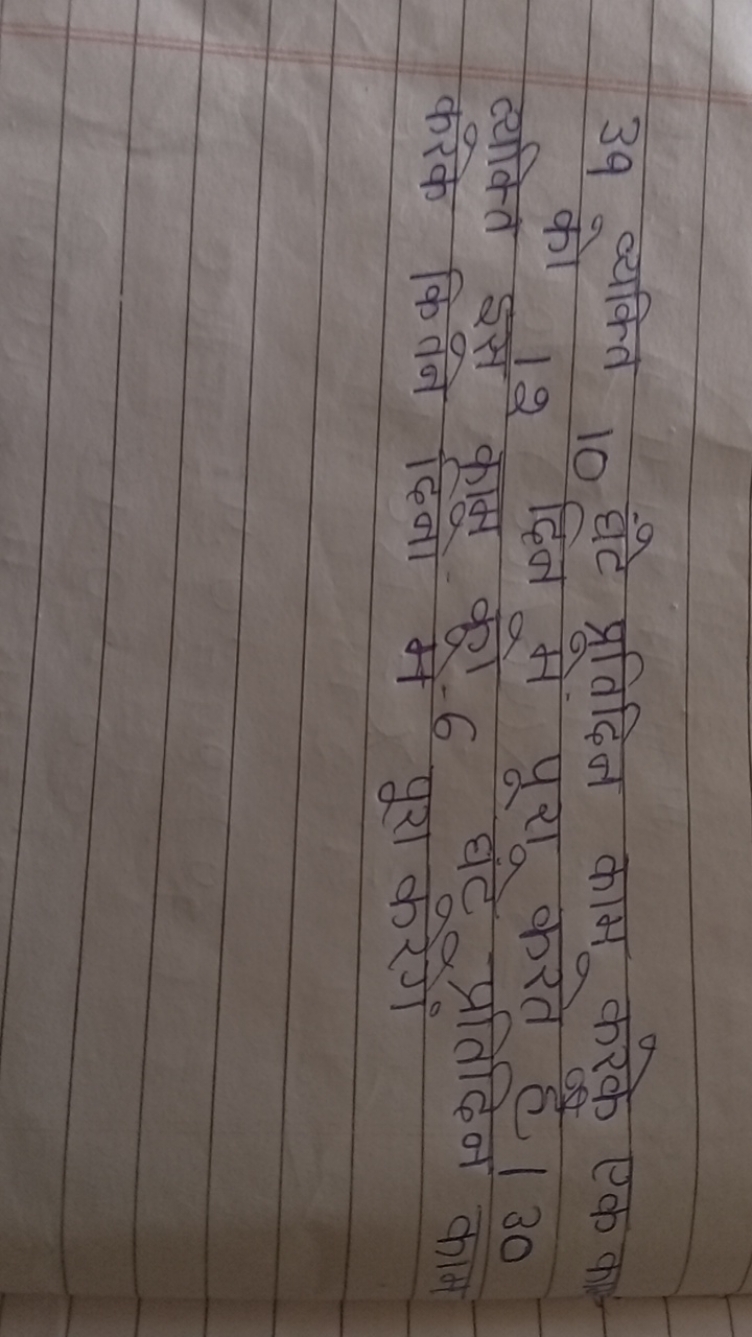 39 व्यक्ति 10 घंटे प्रतिदिन काम करके एक काम
को 12 दिन में पूरा करते हैं। 30
व्यक्ति इस काम को 6 घंटे प्रतिदिन काम
करके कितने दिनों में पूरा करेगें